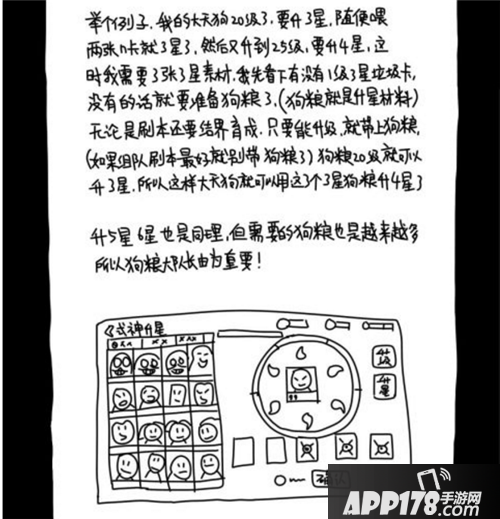 举个例子，我的大天狗20级了，要升3星，随便喂
两张n卡就3星了，然后又升到25级，要升4星，这
时我需要3张3星素材，我先看下有没有1级3星垃圾卡，
没有的话就要准备狗粮了，(狗粮就是升星材料)
无论是刷本还要结界育成，只要能升级，就带上狗粮，
(如果组队刷本最好就别带狗粮了) 狗粮20级就可以
升3星，所以这样大天狗就可以用这3个3星狗粮升4星了
升5星6星也是同理，但需要的狗粮也是越来越多
所以狗粮大队长由为重要！
式神升星
升级
升星
确认
APP178.com
手游网